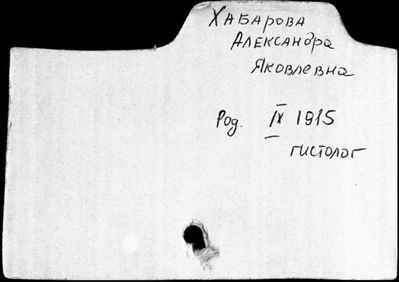 Хабарова
Александра
Яковлевна
Род. IX 1915
гистолог